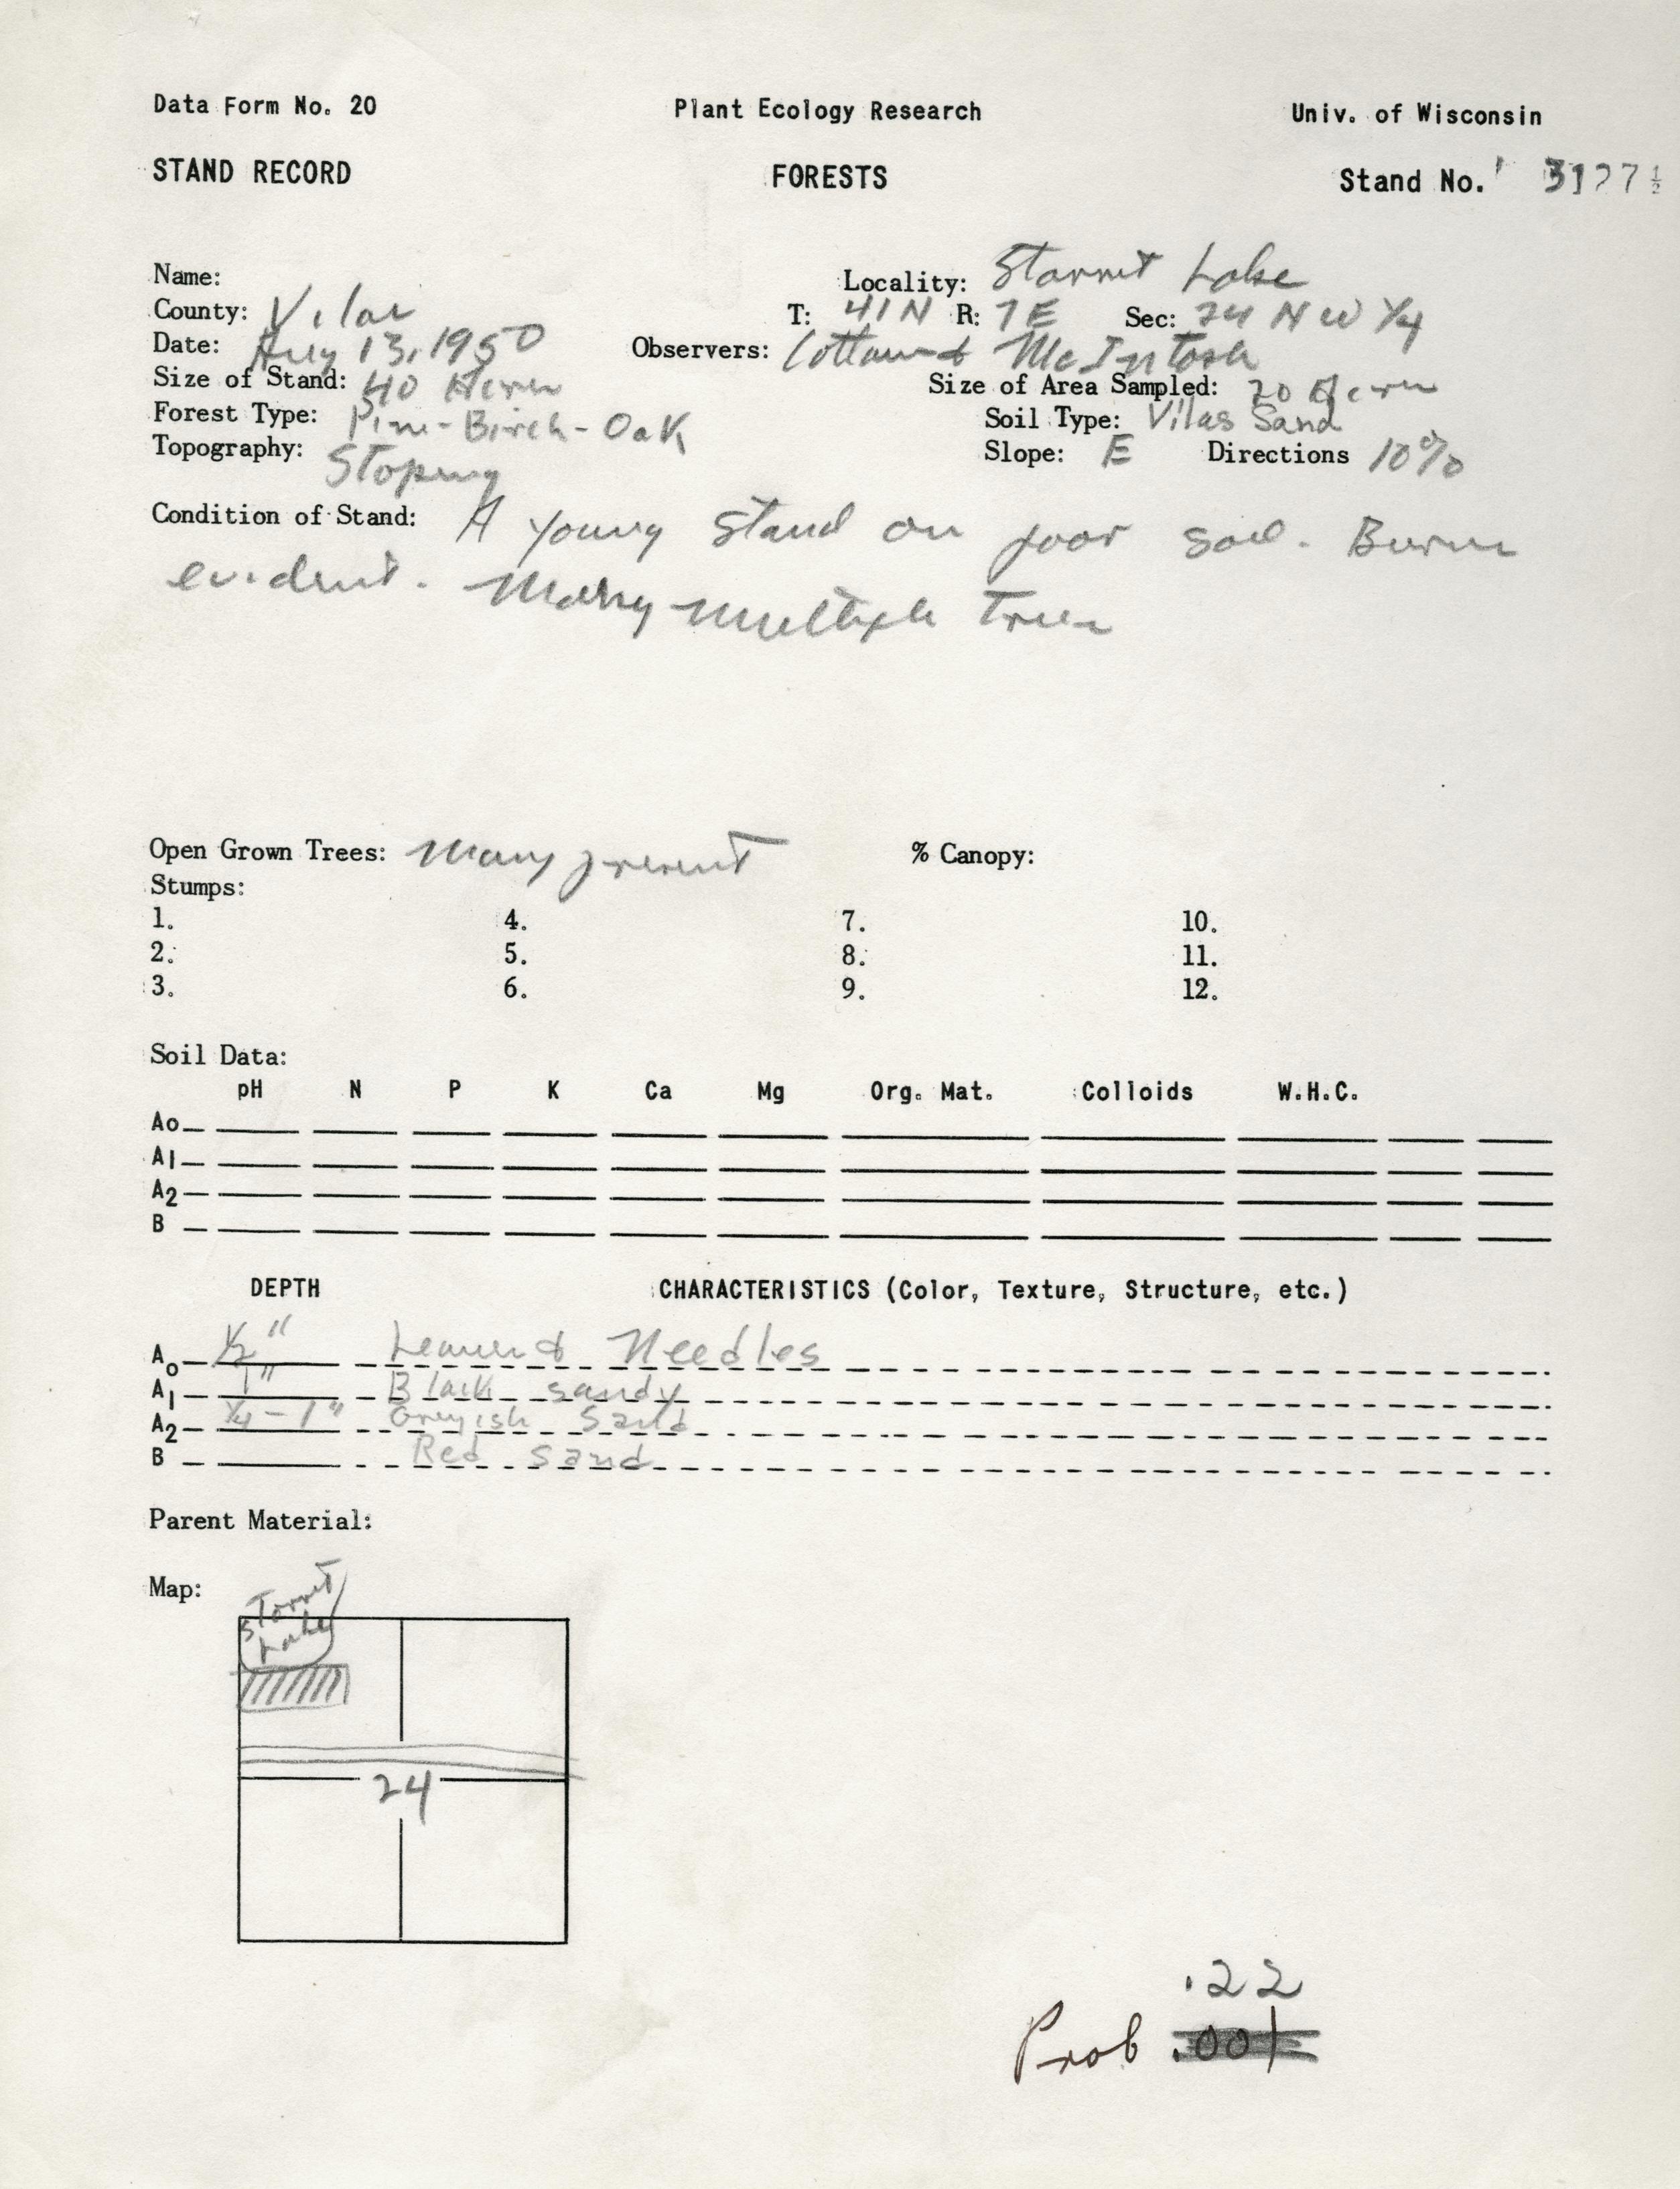 Data Form No. 20 Plant Ecology Research Univ. of Wisconsin
STAND RECORD FORESTS Stand No. 3127½
Name: Locality: Starrit Lake
County: Vilas T: 41N R: 7E Sec: 24 NW ¼
Date: Aug 13, 1950 Observers: Cottam & McIntosh
Size of Stand: 40 Acres Size of Area Sampled: 20 Acres
Forest Type: Pine-Birch-Oak Soil Type: Vilas Sand
Topography: Sloping Slope: E Directions 10%
Condition of Stand: A young stand on poor soil. Burns
evident. Many multiple trees
Open Grown Trees: Many present % Canopy:
Stumps:
1. 4. 7. 10.
2. 5. 8. 11.
3. 6. 9. 12.
Soil Data:
pH N P K Ca Mg Org. Mat. Colloids W.H.C.
Ao
A1
A2
B
DEPTH CHARACTERISTICS (Color, Texture, Structure, etc.)
Ao ½" Leaves & Needles
A1 1" Black sandy
A2 ¼-1" Greyish sand
B Red sand
Parent Material:
Map:
Starrit
Lake
24
.22
Prob .001